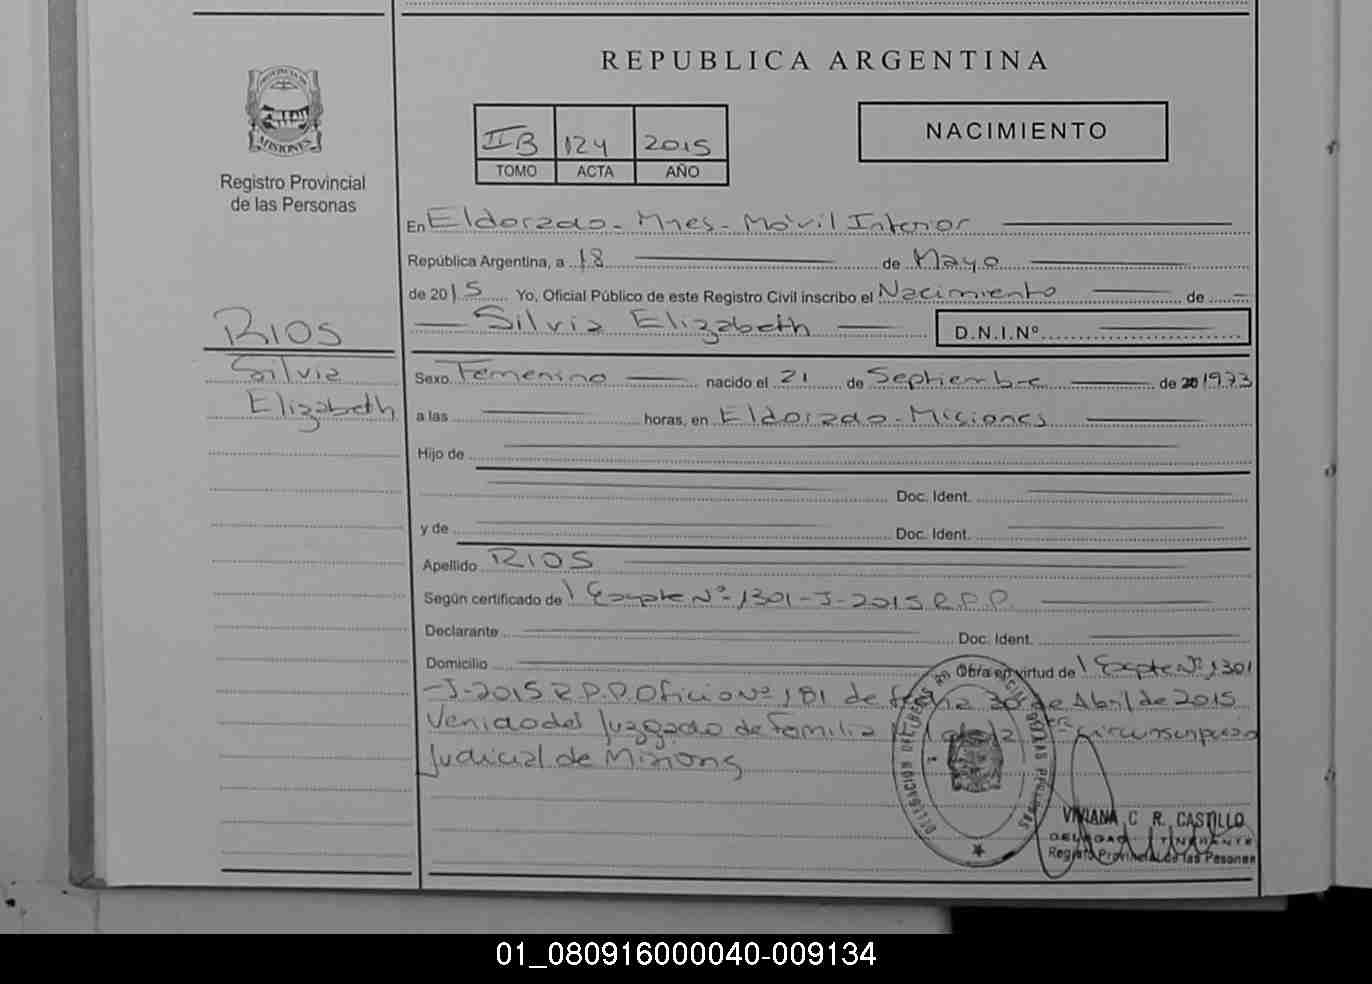 REPUBLICA ARGENTINA
PROVINCIA DE
MISIONES
Registro Provincial
de las Personas
IIB 124 2015
TOMO ACTA AÑO
NACIMIENTO
En Eldorado - Mnes - Móvil Interior
República Argentina, a 18 de Mayo
de 2015 Yo, Oficial Público de este Registro Civil inscribo el Nacimiento de
Silvia Elizabeth D.N.I.Nº
RIOS
Silvia
Elizabeth
Sexo Femenino nacido el 21 de Septiembre de 20 1973
a las horas, en Eldorado - Misiones
Hijo de
Doc. Ident.
y de Doc. Ident.
Apellido RIOS
Según certificado de Expte Nº 1301-J-2015 R.P.P.
Declarante Doc. Ident.
Domicilio Obra en virtud de Expte Nº 1301
-J-2015 R.P.P. Oficio Nº 181 de fecha 30 de Abril de 2015
Venido del Juzgado de Familia de la circunscripción
Judicial de Misiones
VIVIANA C R. CASTILLO
DELEGADA ITINERANTE
Registro Provincial de las Personas
01_080916000040-009134